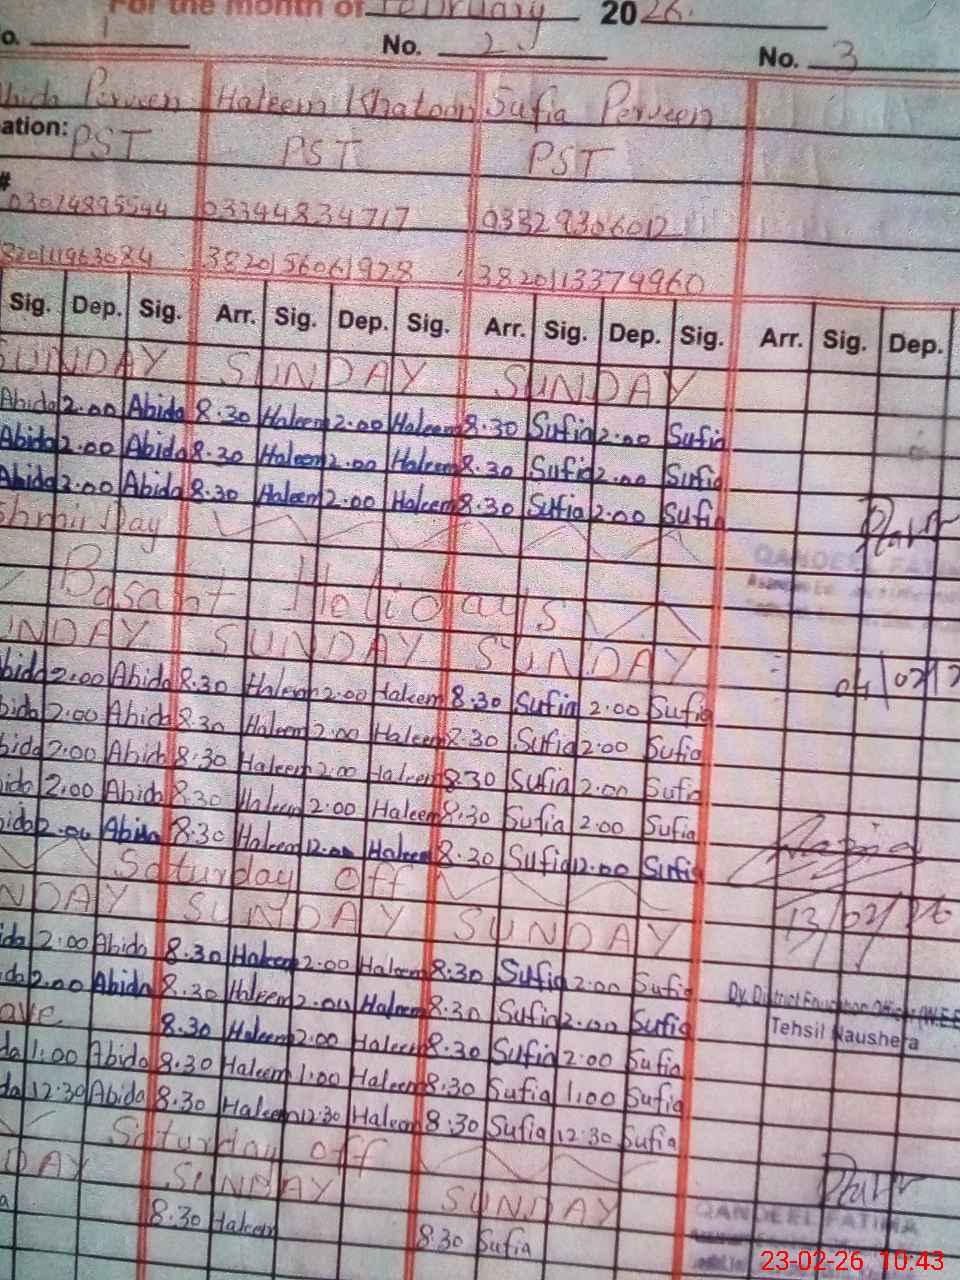 For the month of February 2026.
o. 1 No. 2 No. 3
Perveen Haleem Khatoon Sufia Perveen
ation: PST PST PST
#
03074895544 03344834717 03329306012
3820156061928 3820113379960
Sig. Dep. Sig. Arr. Sig. Dep. Sig. Arr. Sig. Dep. Sig. Arr. Sig. Dep.
SUNDAY SUNDAY SUNDAY
Abida 2.00 Abida 8.30 Haleem 2.00 Haleem 8.30 Sufia 2.00 Sufia
Abida 2.00 Abida 8.30 Haleem 2.00 Haleem 8.30 Sufia 2.00 Sufia
Abida 2.00 Abida 8.30 Haleem 2.00 Haleem 8.30 Sufia 2.00 Sufia
shmir Day
QANDEEL FATIMA
Basant Holidays
NDAY SUNDAY SUNDAY
04/02/2
bida 2.00 Abida 8.30 Haleem 2.00 Haleem 8.30 Sufia 2.00 Sufia
bida 2.00 Abida 8.30 Haleem 2.00 Haleem 8.30 Sufia 2.00 Sufia
bida 2.00 Abida 8.30 Haleem 2.00 Haleem 8.30 Sufia 2.00 Sufia
ida 2.00 Abida 8.30 Haleem 2.00 Haleem 8.30 Sufia 2.00 Sufia
ida 2.00 Abida 8.30 Haleem 12.00 Haleem 8.30 Sufia 12.00 Sufia
Saturday off
NDAY SUNDAY SUNDAY
13/02/26
ida 2.00 Abida 8.30 Haleem 2.00 Haleem 8.30 Sufia 2.00 Sufia
da 2.00 Abida 8.30 Haleem 2.00 Haleem 8.30 Sufia 2.00 Sufia
Dy. District Education Officer (W.EE
Tehsil Naushera
ave 8.30 Haleem 2.00 Haleem 8.30 Sufia 2.00 Sufia
da 1.00 Abida 8.30 Haleem 1.00 Haleem 8.30 Sufia 1.00 Sufia
da 12.30 Abida 8.30 Haleem 12.30 Haleem 8.30 Sufia 12.30 Sufia
Saturday off
DAY SUNDAY SUNDAY
a 8.30 Haleem 8.30 Sufia
QANDEEL FATIMA
23-02-26 10:43